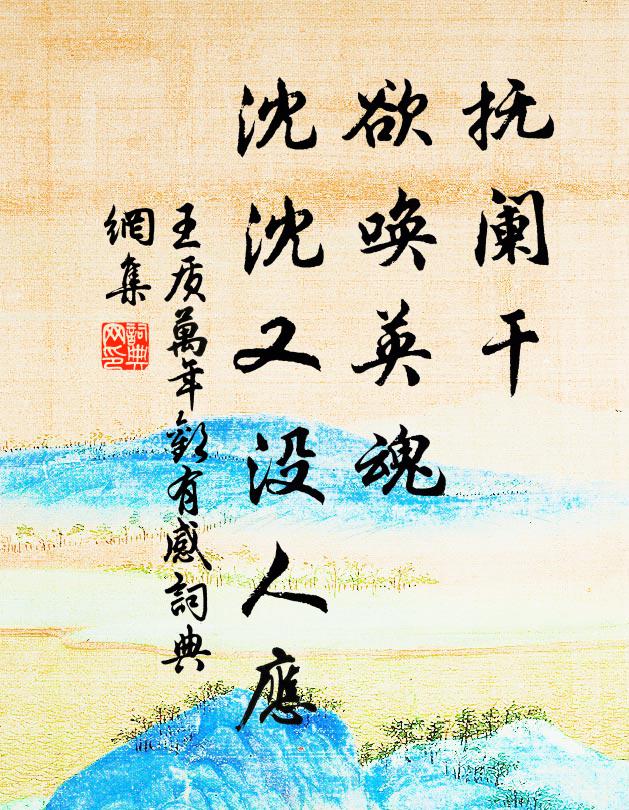 抚阑干
欲唤英魂
沈沈又没人應
王质萬年歡有感詞典
網集
詞典
网印